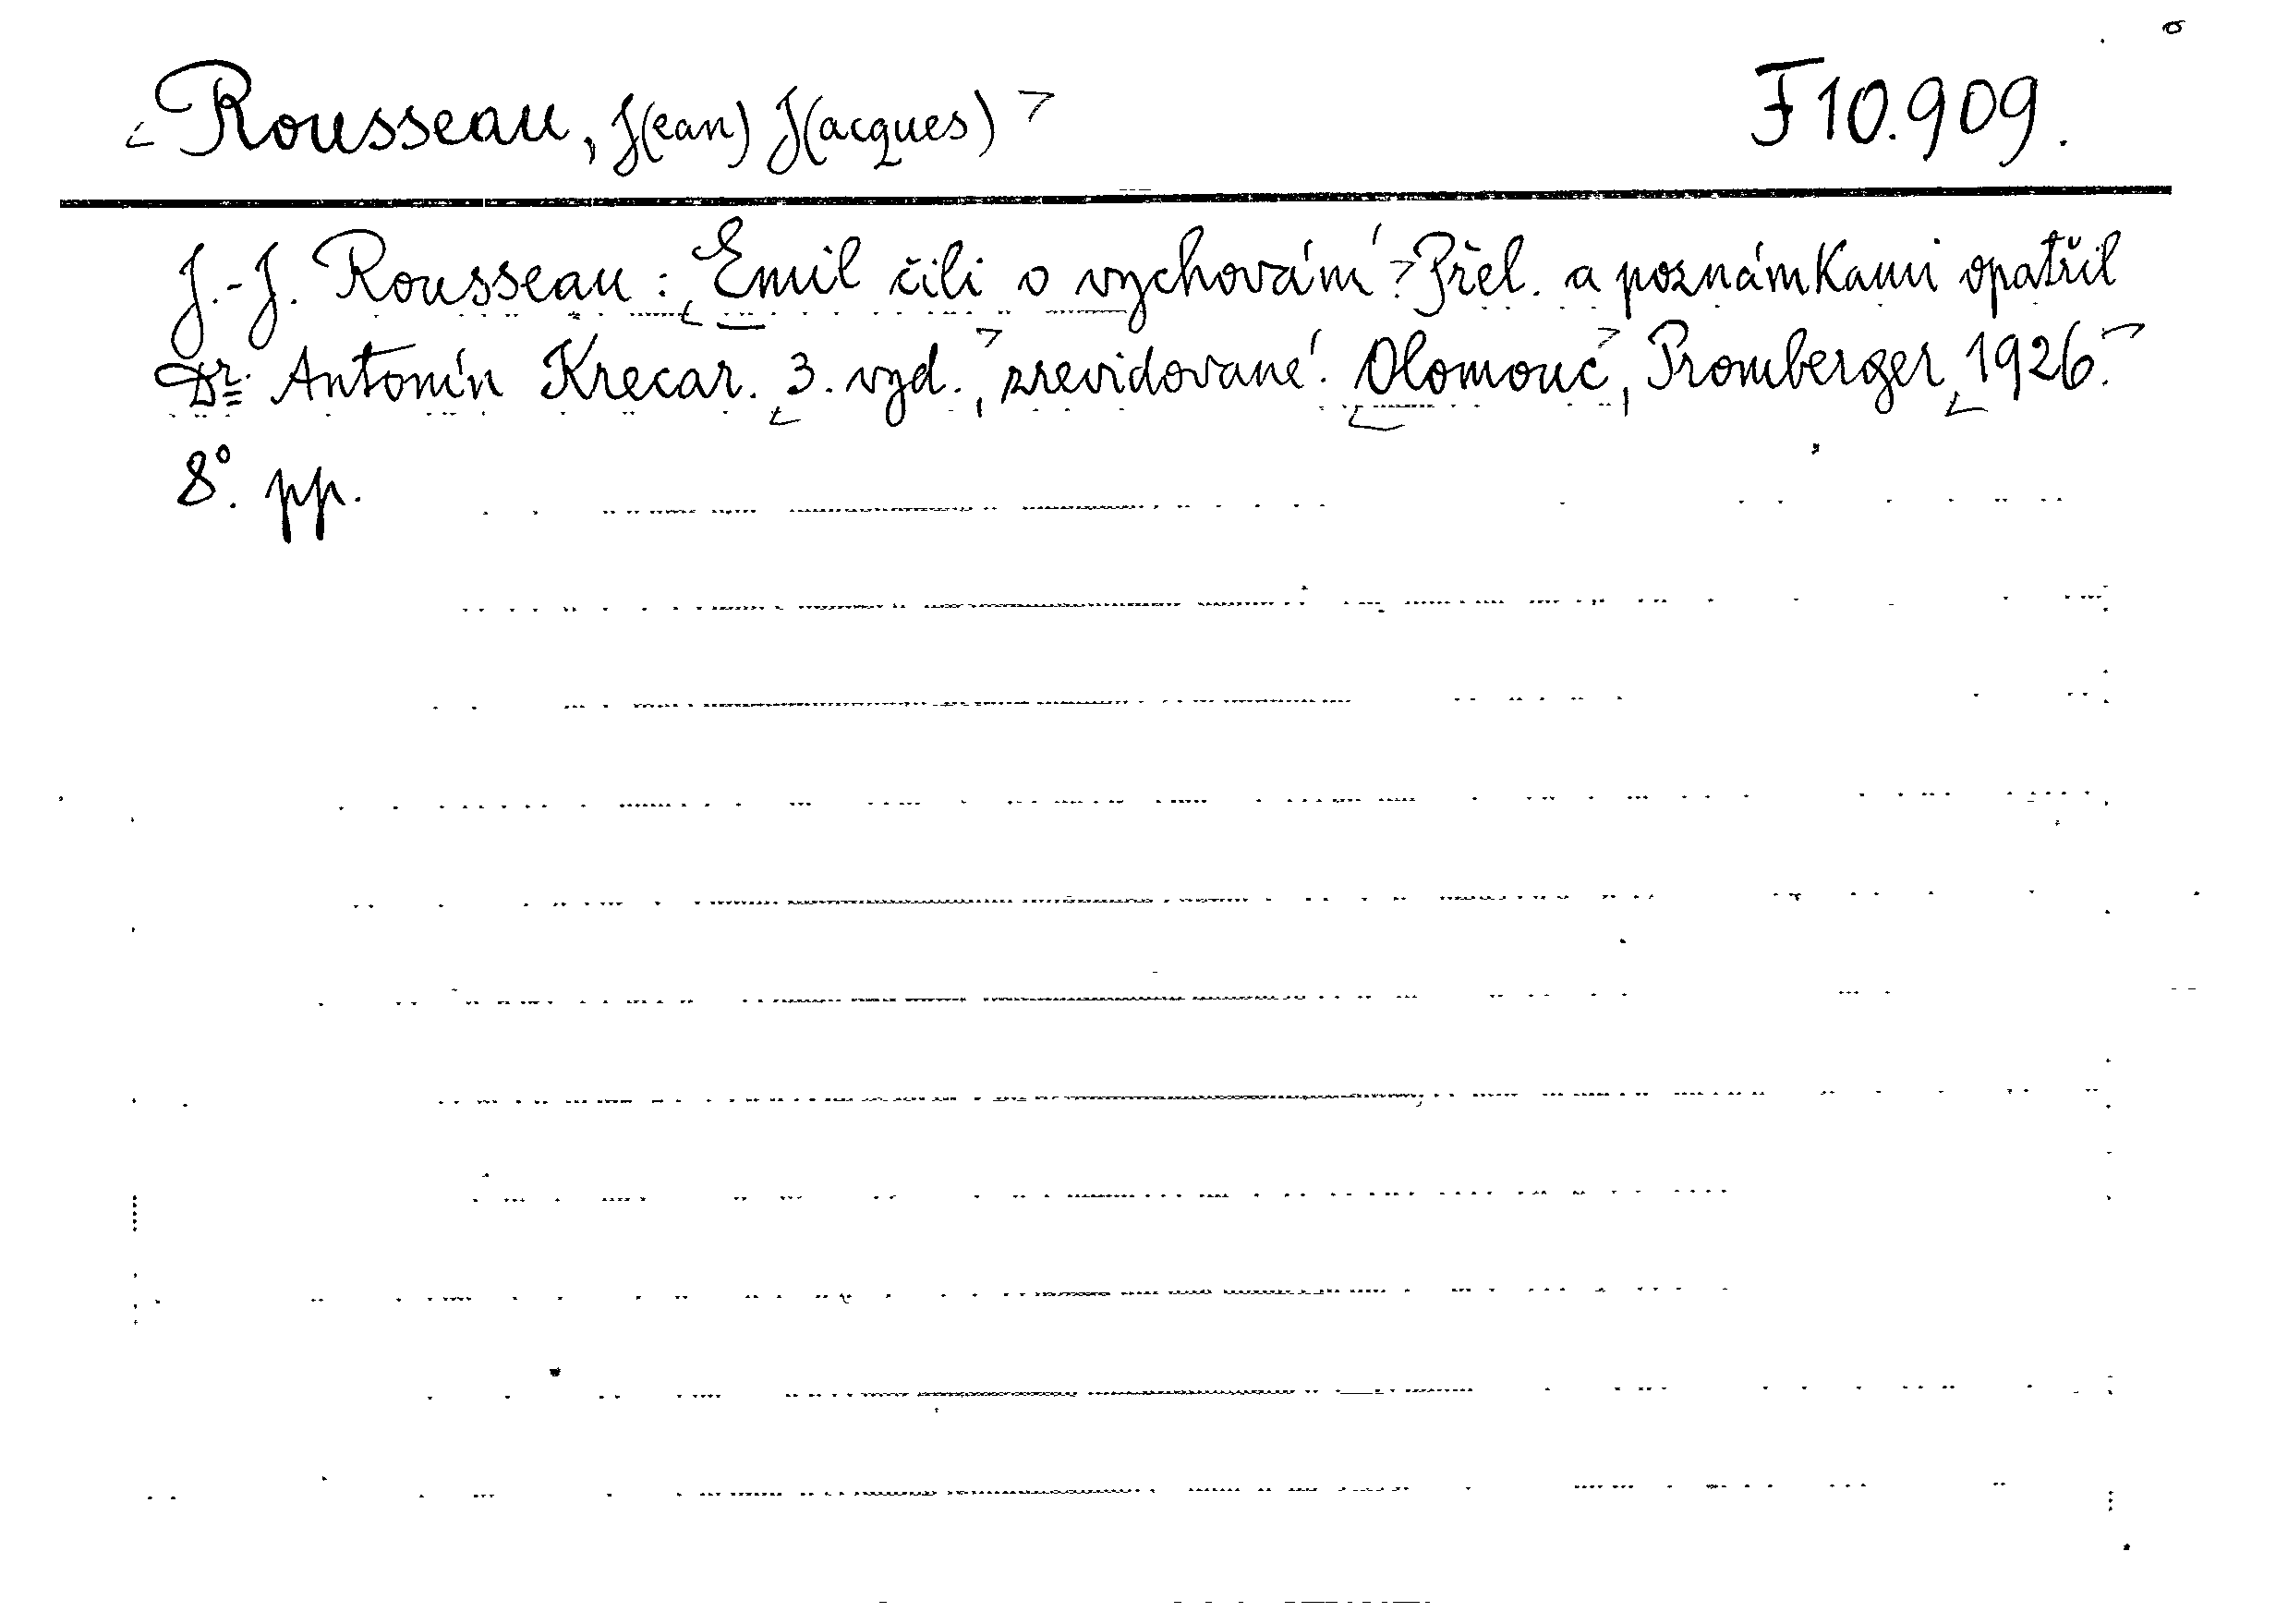 Rousseau, J(ean) J(acques)
F 10.909.
J.-J. Rousseau: Emil čili o vychování. Přel. a poznámkami opatřil
Dr. Antonín Krecar. 3. vyd., zrevidované. Olomouc, Promberger, 1926.
8°. pp.